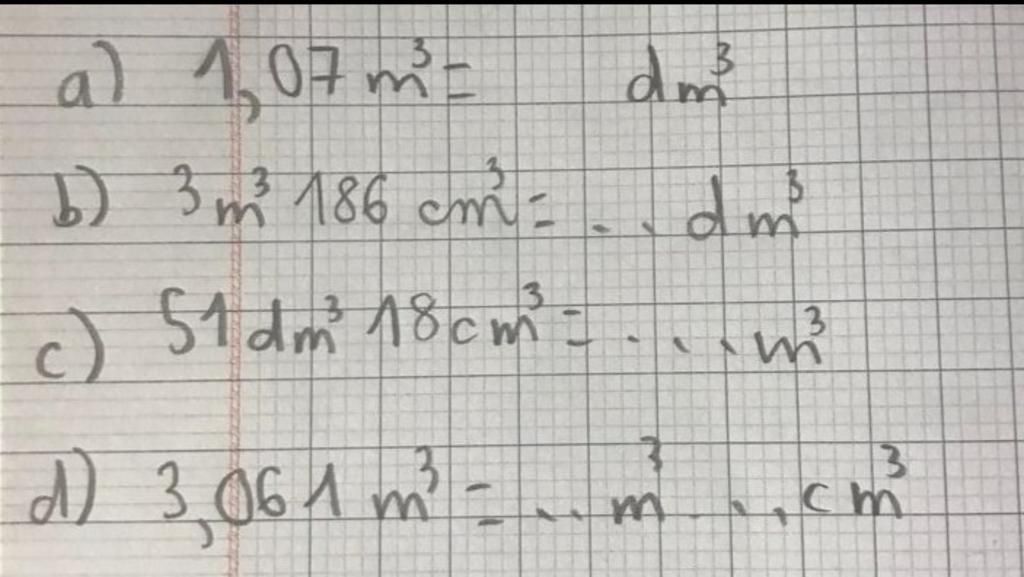 a) 1,07 m³ = dm³
b) 3 m³ 186 cm³ = .. dm³
c) 51 dm³ 18 cm³ = ... m³
d) 3,061 m³ = .. m³ ... cm³